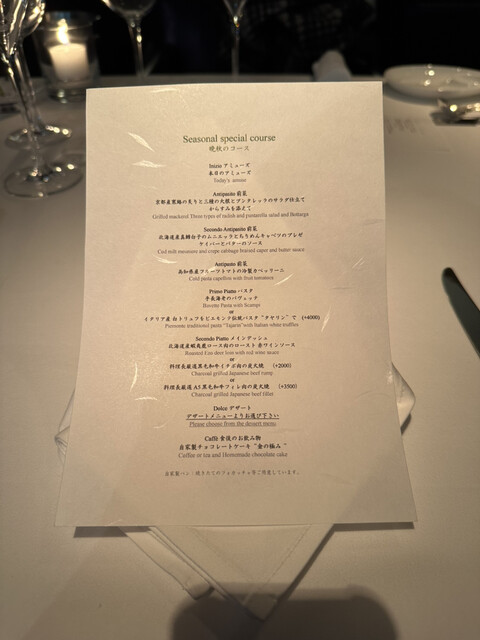 Seasonal special course
晩秋のコース
Inizio アミューズ
本日のアミューズ
Today's amuse
Antipasto 前菜
京都産黒鮪の炙りと三種の大根とプンタレッラのサラダ仕立て
からすみを添えて
Grilled mackerel Three types of radish and puntarella salad and Bottarga
Secondo Antipasto 前菜
北海道産真鱈白子のムニエルとちりめんキャベツのブレゼ
ケイパーとバターのソース
Cod milt meuniere and crepe cabbage braised caper and butter sauce
Antipasto 前菜
高知県産フルーツトマトの冷製カペッリーニ
Cold pasta capellini with fruit tomatoes
Primo Piatto パスタ
手長海老のパヴェッテ
Bavette Pasta with Scampi
or
イタリア産 白トリュフをピエモンテ伝統パスタ "タヤリン" で (+4000)
Piemonte traditional pasta "Tajarin" with Italian white truffles
Secondo Piatto メインディッシュ
北海道産蝦夷鹿ロース肉のロースト 赤ワインソース
Roasted Ezo deer loin with red wine sauce
or
料理長厳選黒毛和牛イチボ肉の炭火焼 (+2000)
Charcoal grilled Japanese beef rump
or
料理長厳選 A5 黒毛和牛フィレ肉の炭火焼 (+3500)
Charcoal grilled Japanese beef fillet
Dolce デザート
デザートメニューよりお選び下さい
Please choose from the dessert menu.
Caffè 食後のお飲み物
自家製チョコレートケーキ "金の極み"
Coffee or tea and Homemade chocolate cake
自家製パン:焼きたてのフォカッチャをご用意しています。